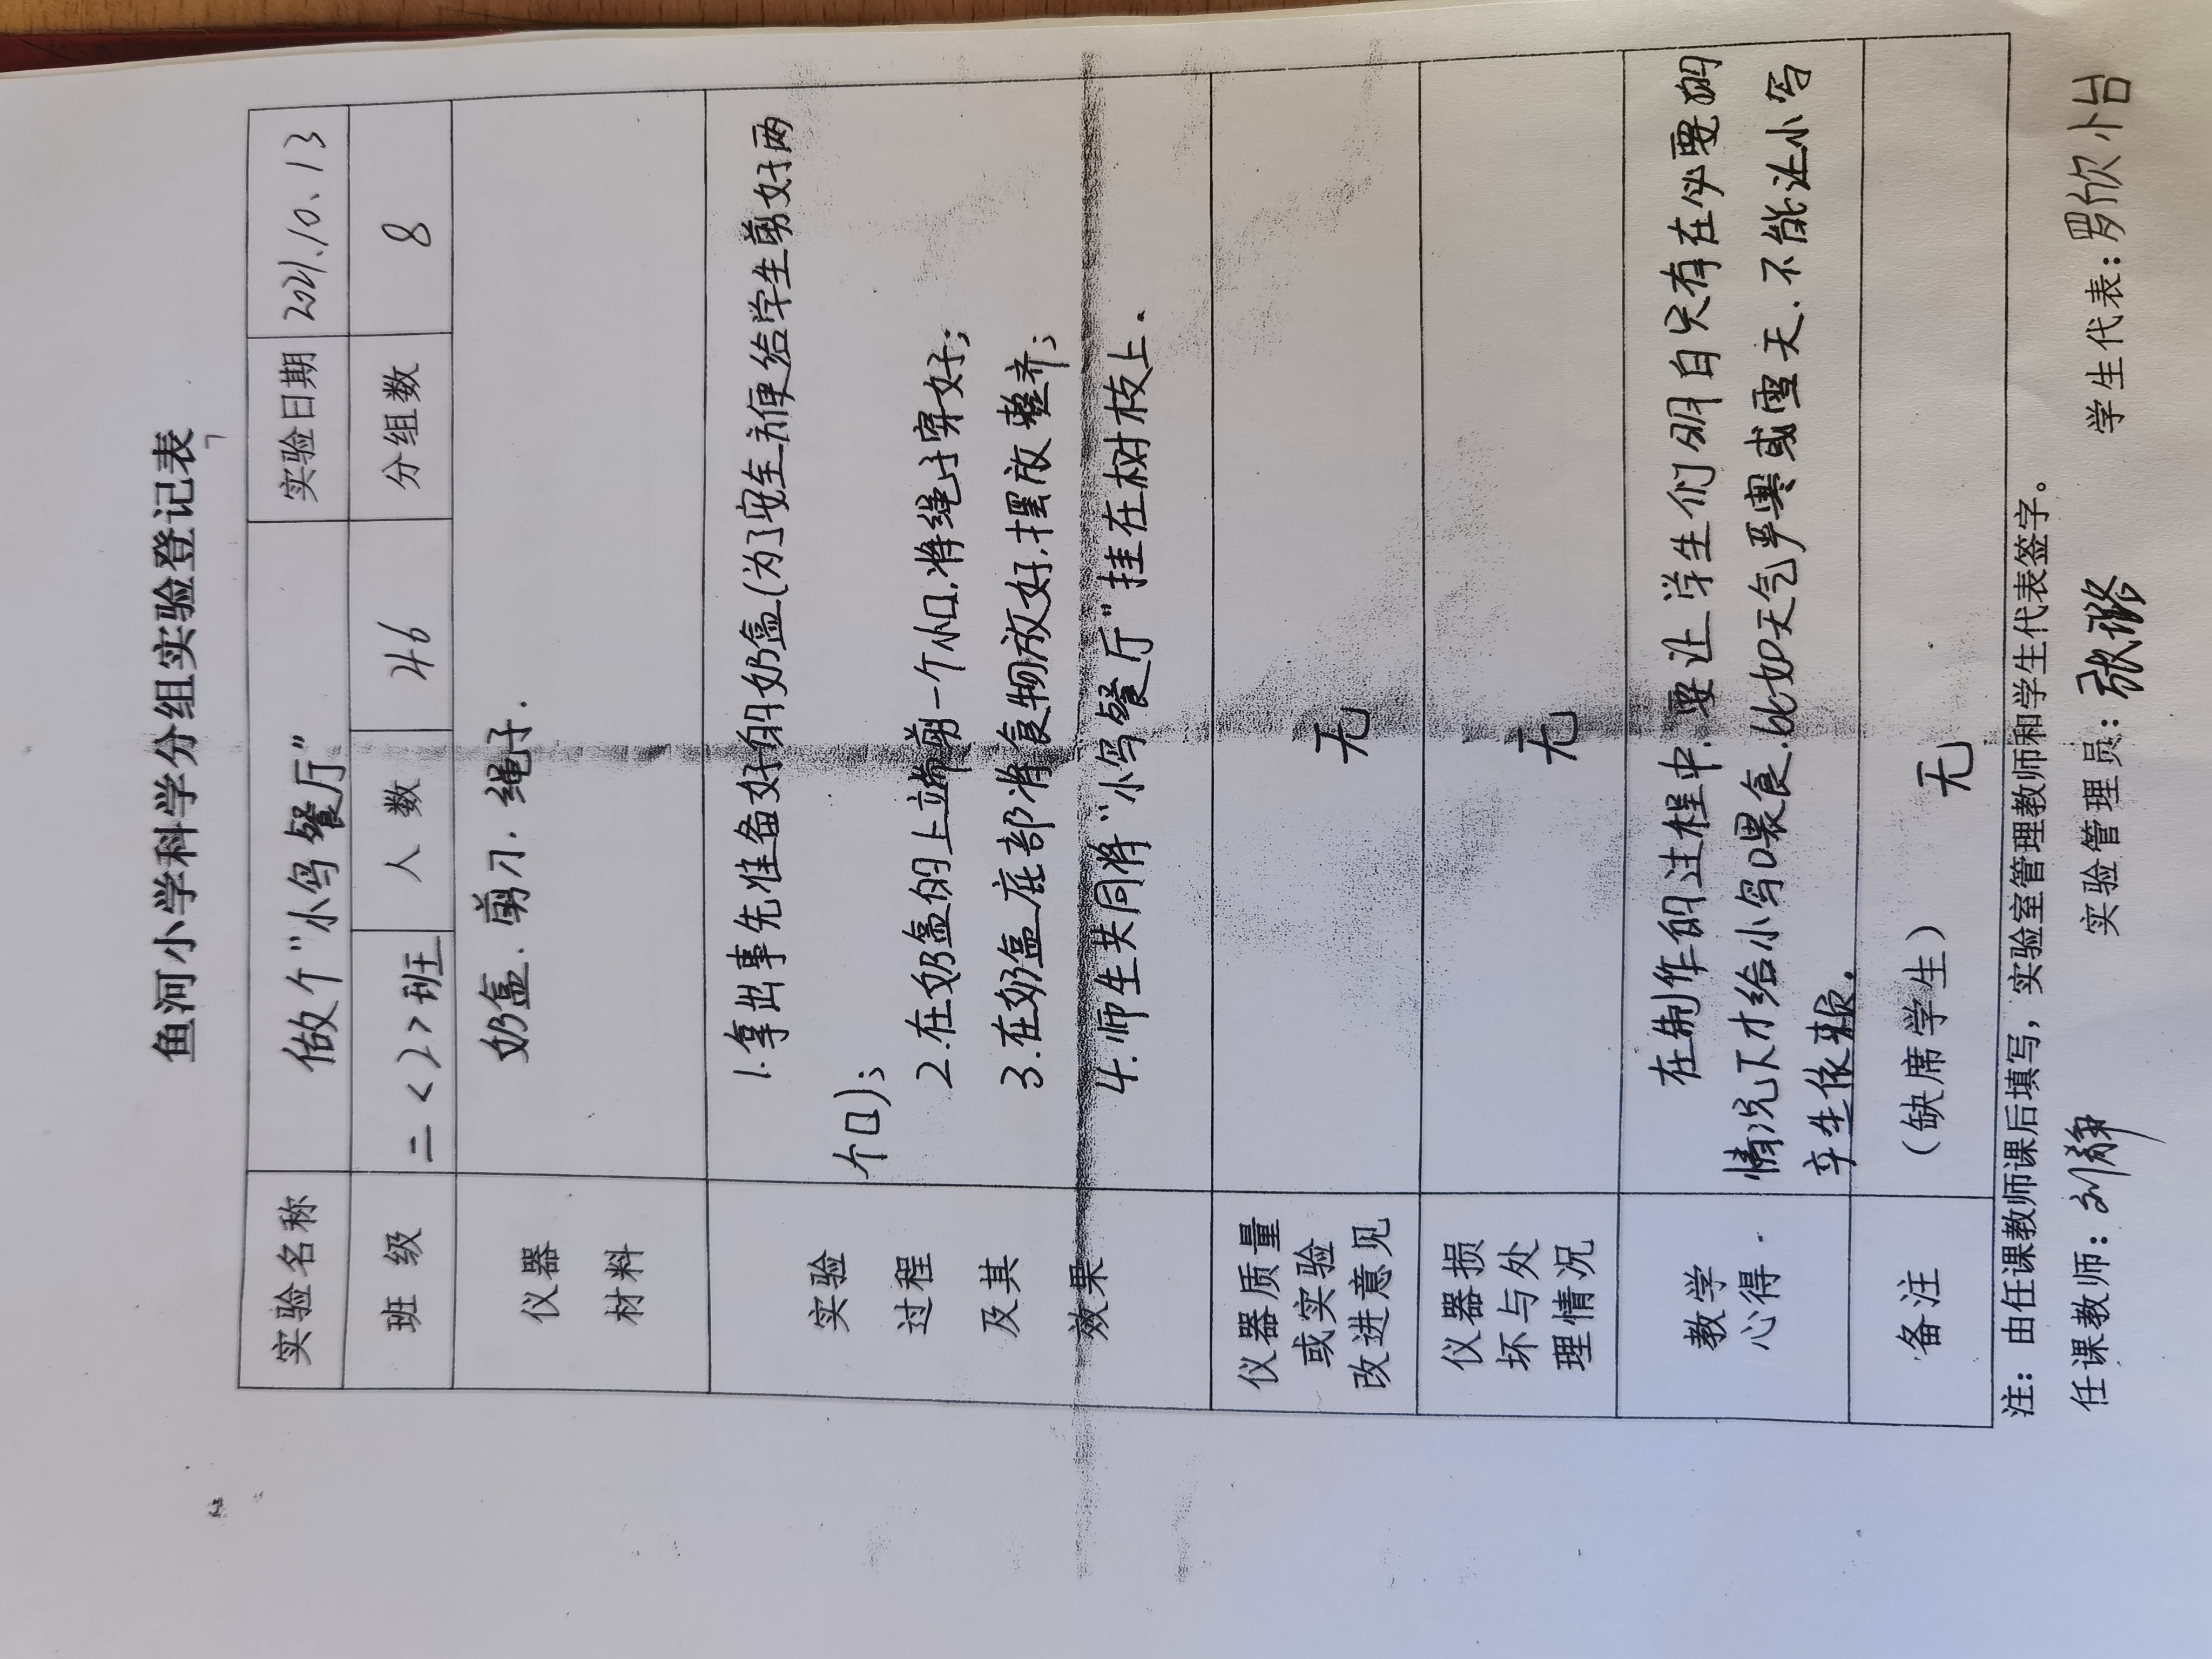 鱼河小学科学分组实验登记表
实验名称 做个“小鸟餐厅” 实验日期 2021.10.13
班 级 二<2>班 人 数 46 分组数 8
仪器
材料
奶盒、剪刀、绳子.
实验
过程
及其
效果
1.拿出事先准备好的奶盒(为了安全方便给学生剪好两
个口);
2.在奶盒的上端剪一个小口,将绳子穿好;
3.在奶盒底部将食物放好,摆放整齐;
4.师生共同将“小鸟餐厅”挂在树枝上.
仪器质量
或实验
改进意见
无
仪器损
坏与处
理情况
无
教学
心得
在制作的过程中,要让学生们明白只有在必要的
情况下才给小鸟喂食,比如天气严寒或雪天,不能让小鸟
产生依赖.
备注
(缺席学生) 无
注：由任课教师课后填写，实验室管理教师和学生代表签字。
任课教师：刘静 实验管理员：张璐 学生代表：罗欣